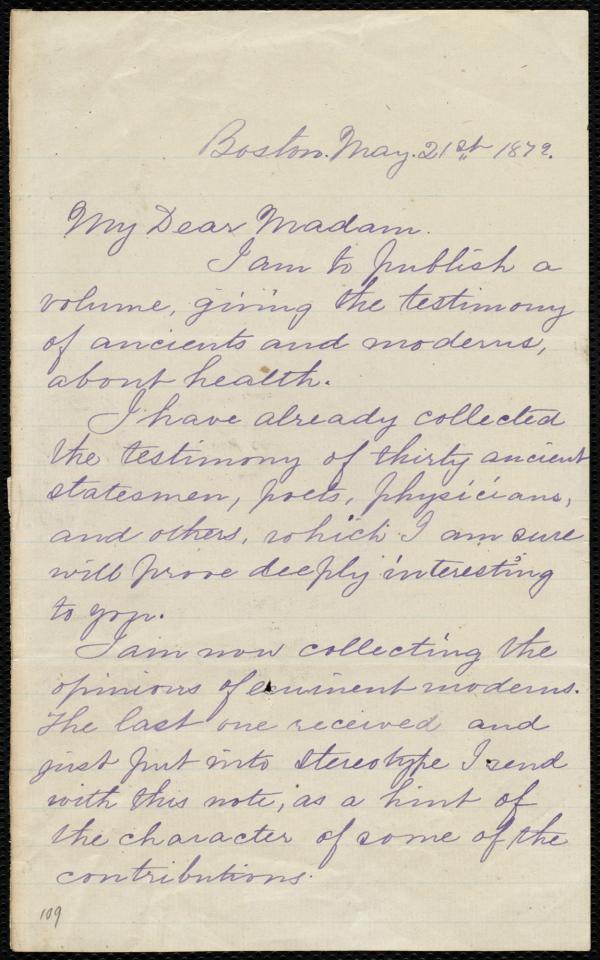 Boston. May. 21st 1879.
My Dear Madam.
I am to publish a
volume, giving the testimony
of ancients and moderns,
about health.
I have already collected
the testimony of thirty ancient
statesmen, poets, physicians,
and others, which I am sure
will prove deeply interesting
to you.
I am now collecting the
opinions of eminent moderns.
The last one received and
just put into stereotype I send
with this note, as a hint of
the character of some of the
contributions.
109